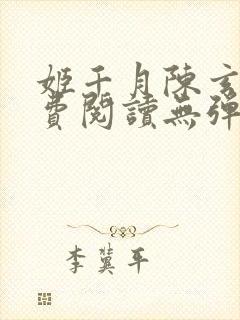 姬千月陳玄
費閱讀無彈
李冀平